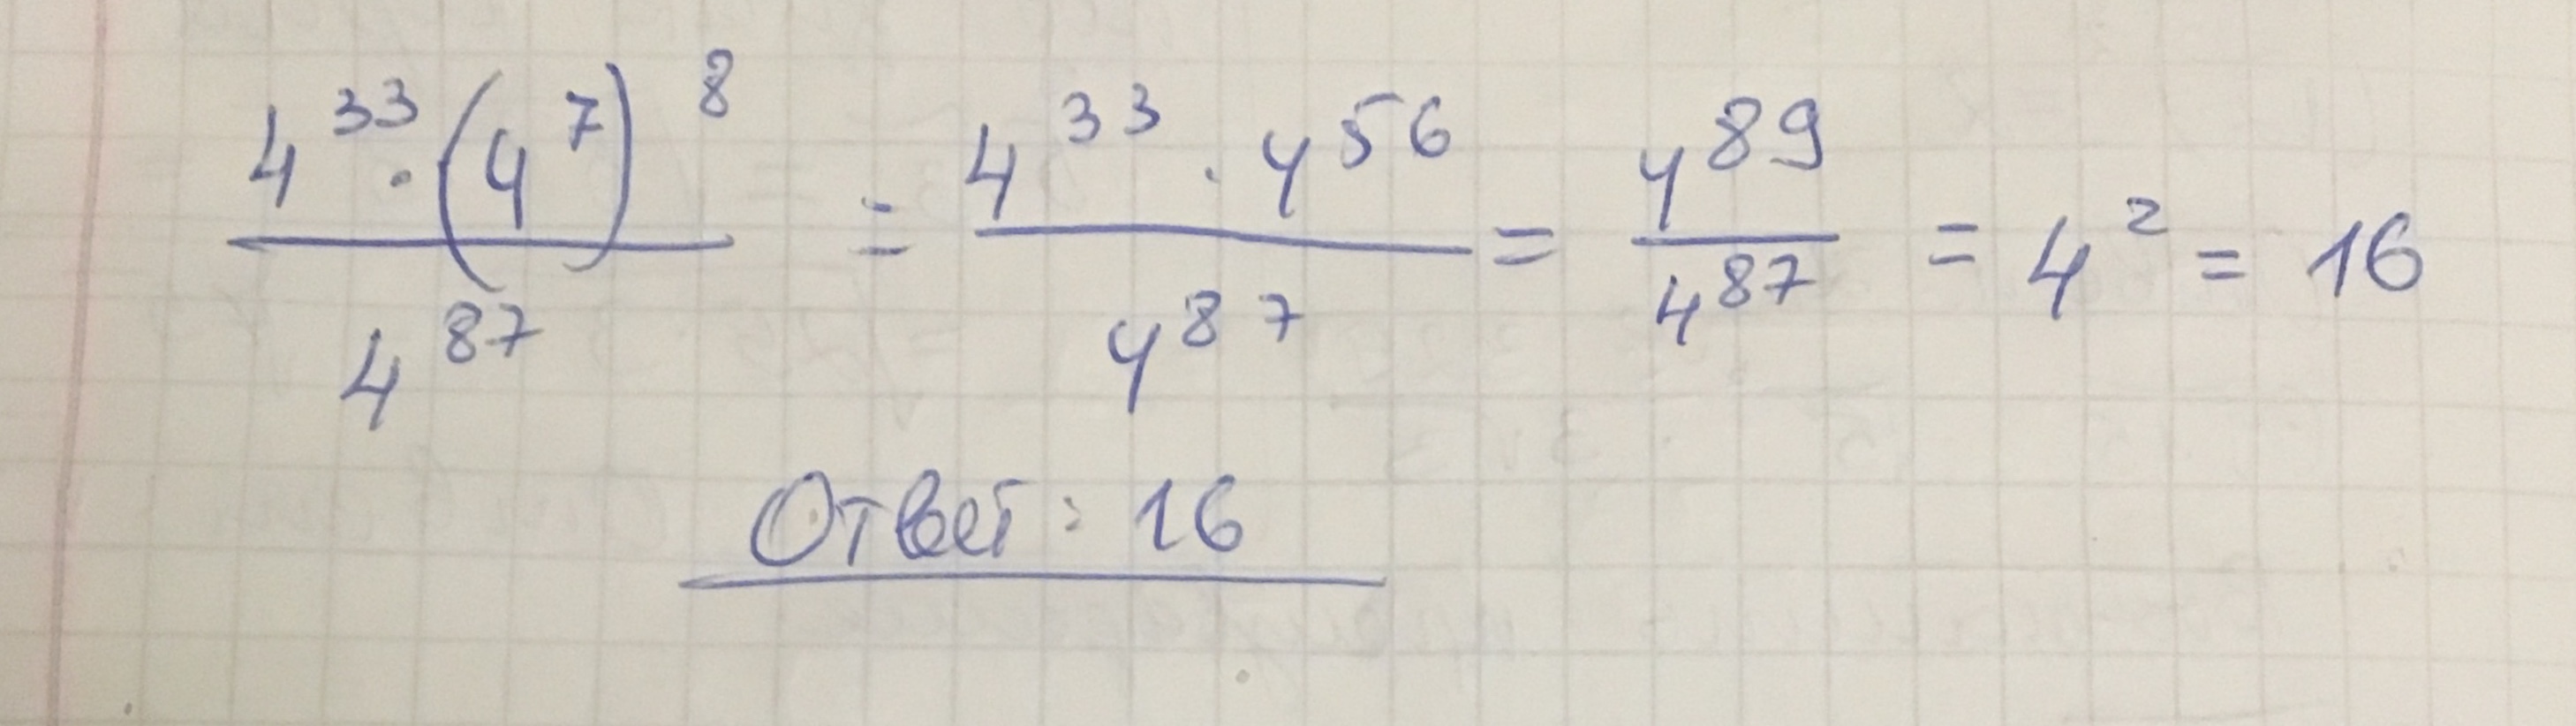 \frac{4^{33} \cdot (4^7)^8}{4^{87}} = \frac{4^{33} \cdot 4^{56}}{4^{87}} = \frac{4^{89}}{4^{87}} = 4^2 = 16
Ответ: 16